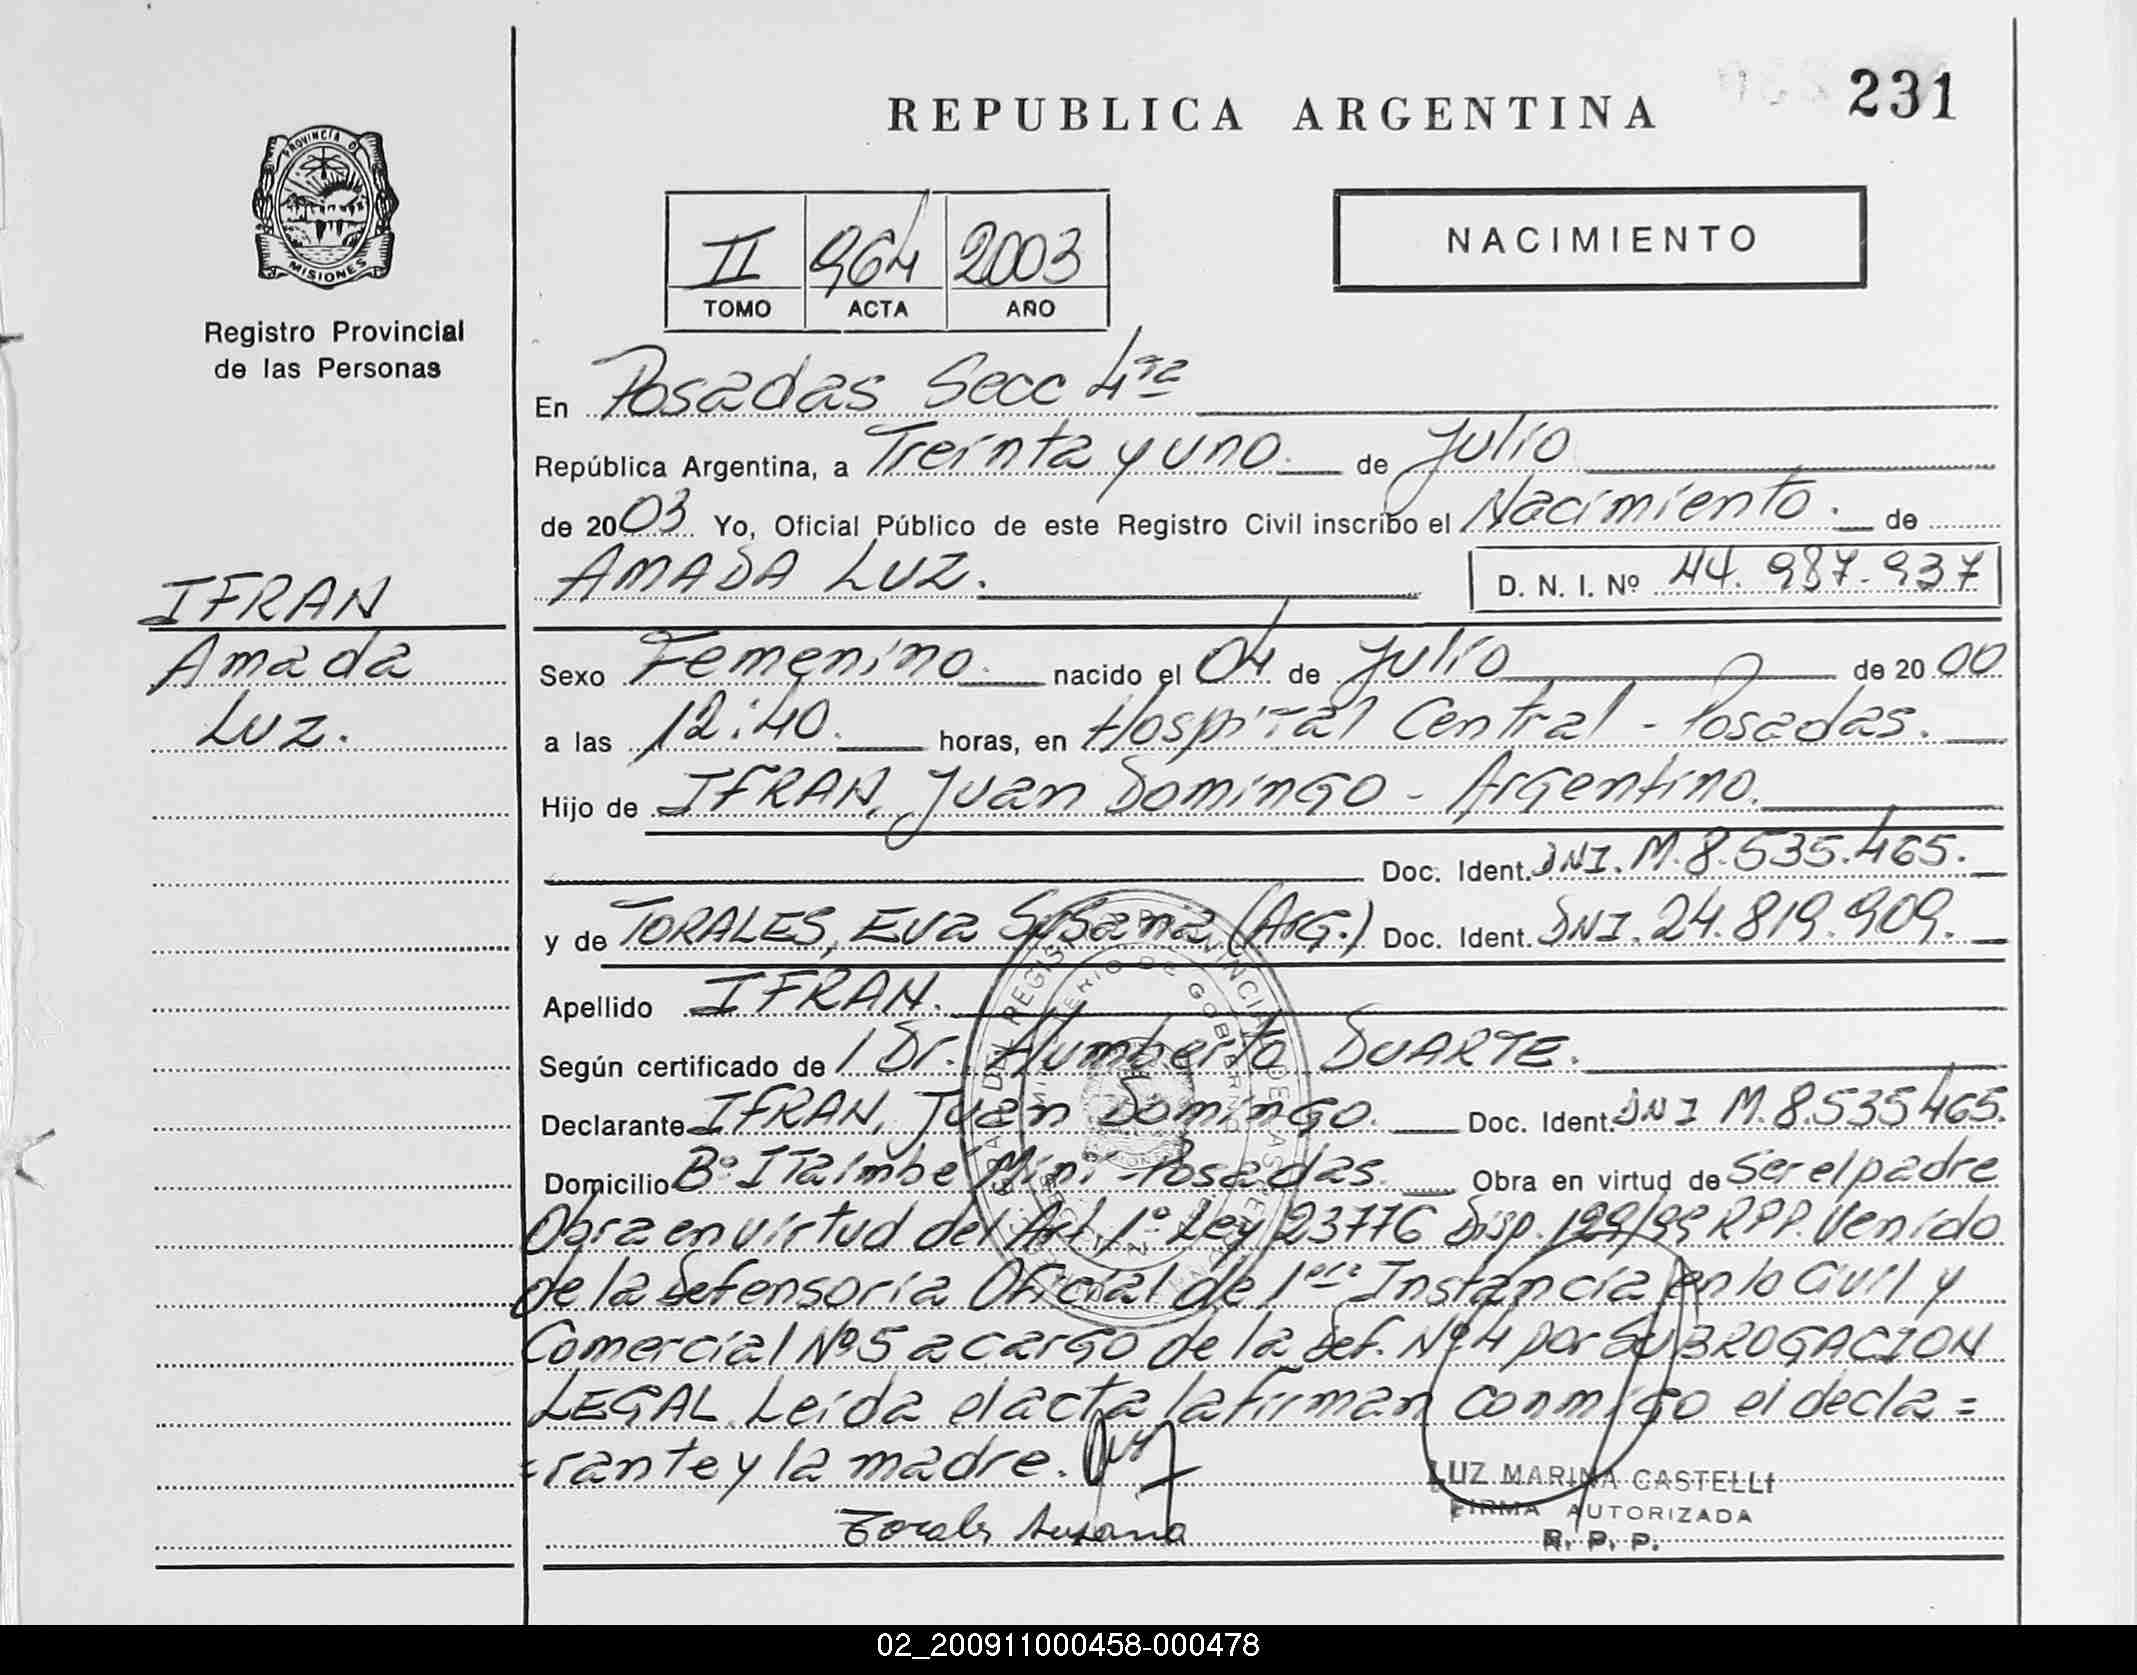 REPUBLICA ARGENTINA
231
PROVINCIA DE
MISIONES
Registro Provincial
de las Personas
II 964 2003
TOMO ACTA AÑO
NACIMIENTO
En Posadas Secc 4ta
República Argentina, a Treinta y uno. de Julio
de 2003 Yo, Oficial Público de este Registro Civil inscribo el Nacimiento. de
AMADA LUZ. D. N. I. Nº 44.987.937
IFRAN
Amada
Luz.
Sexo Femenino. nacido el 04 de Julio de 2000
a las 12:40. horas, en Hospital Central - Posadas.
Hijo de IFRAN, Juan Domingo - Argentino.
Doc. Ident. DNI. M. 8.535.465.
y de TORALES, Eva Susana (Arg.) Doc. Ident. DNI. 24.819.909.
Apellido IFRAN.
Según certificado de / Dr. Humberto DUARTE.
Declarante IFRAN, Juan Domingo. Doc. Ident. DNI M. 8.535465.
Domicilio Bº ITaimbé Miní - Posadas. Obra en virtud de Ser el padre
Obra en virtud del Art 1º Ley 23776 Disp. 129/99 RPP. Venido
de la Defensoría Oficial de 1era Instancia en lo Civil y
Comercial Nº 5 a cargo de la Def. Nº 4 por SUBROGACION
LEGAL. Leída el acta la firman conmigo el decla=
=rante y la madre.
Torales Susana
LUZ MARINA CASTELLI
FIRMA AUTORIZADA
R. P. P.
02_200911000458-000478